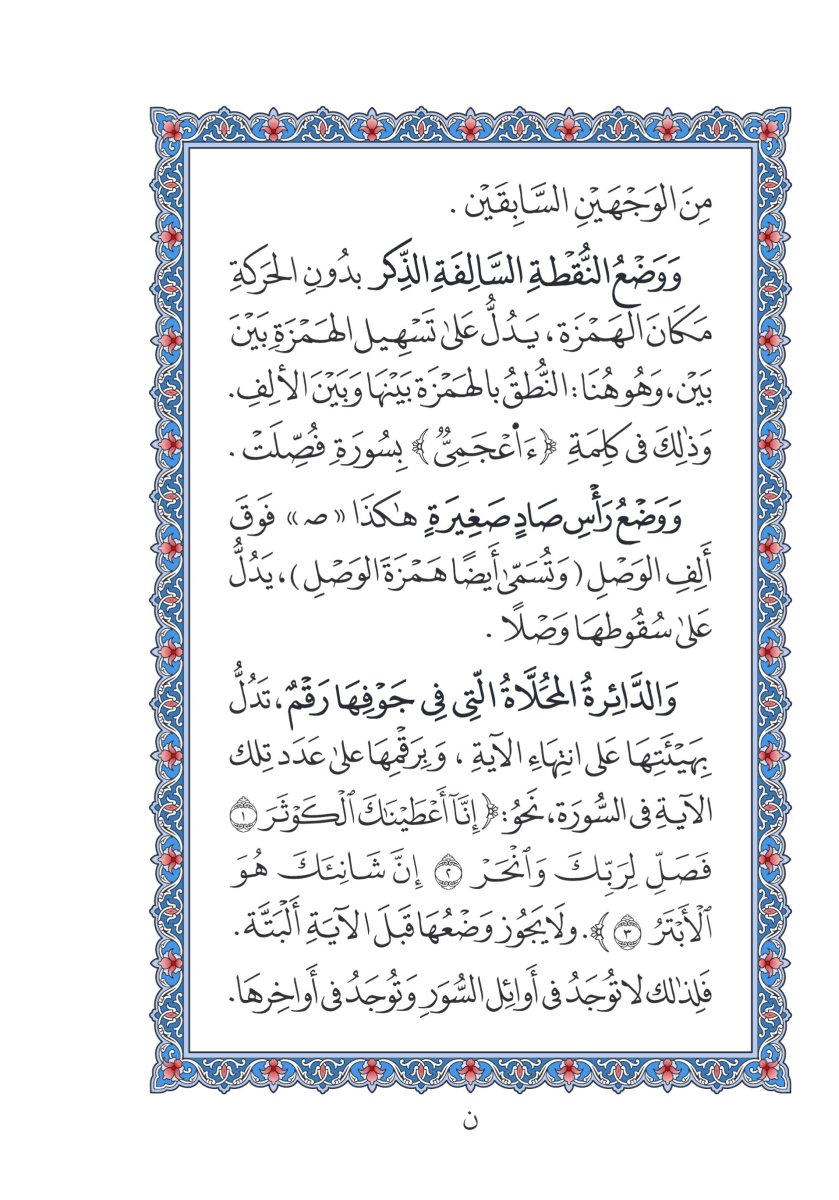 مِنَ الوَجْهَيْنِ السَّابِقَيْنِ .
وَوَضْعُ النُّقْطَةِ السَّالِفَةِ الذِّكر بدُونِ الحَرَكَةِ
مَكَانَ الهَمْزَة، يَدُلُّ عَلىٰ تَسْهِيل الهَمْزَةِ بَيْنَ
بَيْن، وَهُو هُنَا: النُّطقُ بالهَمْزَة بَيْنَهَا وَبَيْنَ الألِفِ.
وَذٰلِكَ فى كَلِمَةِ ﴿ءَا۬عْجَمِىٌّ﴾ بِسُورَةِ فُصِّلَتْ .
وَوَضْعُ رَأْسِ صَادٍ صَغِيرَةٍ هٰكَذَا «صـ» فَوْقَ
أَلِفِ الوَصْلِ (وَتُسَمّىٰ أَيضًا هَمْزَةَ الوَصْلِ)، يَدُلُّ
عَلىٰ سُقُوطهَا وَصْلًا .
وَالدَّائِرةُ المُحَلَّاةُ الّتِى فِى جَوْفِهَا رَقْمٌ، تَدُلُّ
بِهَيْئَتِهَا عَلى انتِهَاءِ الآيَةِ ، وَبِرَقْمِهَا علىٰ عَدَد تِلك
الآيَةِ فى السُّورَة، نَحْوُ: ﴿إِنَّآ أَعْطَيْنَٰكَ ٱلْكَوْثَرَ ١
فَصَلِّ لِرَبِّكَ وَٱنْحَرْ ٢ إِنَّ شَانِئَكَ هُوَ
ٱلْأَبْتَرُ ٣﴾. ولَا يَجُوز وَضْعُهَا قَبْلَ الآيَةِ أَلْبَتَّة.
فَلِذٰلك لا تُوجَدُ فى أَوائِل السُّوَرِ وَتُوجَدُ فى أَواخِرهَا.
ن